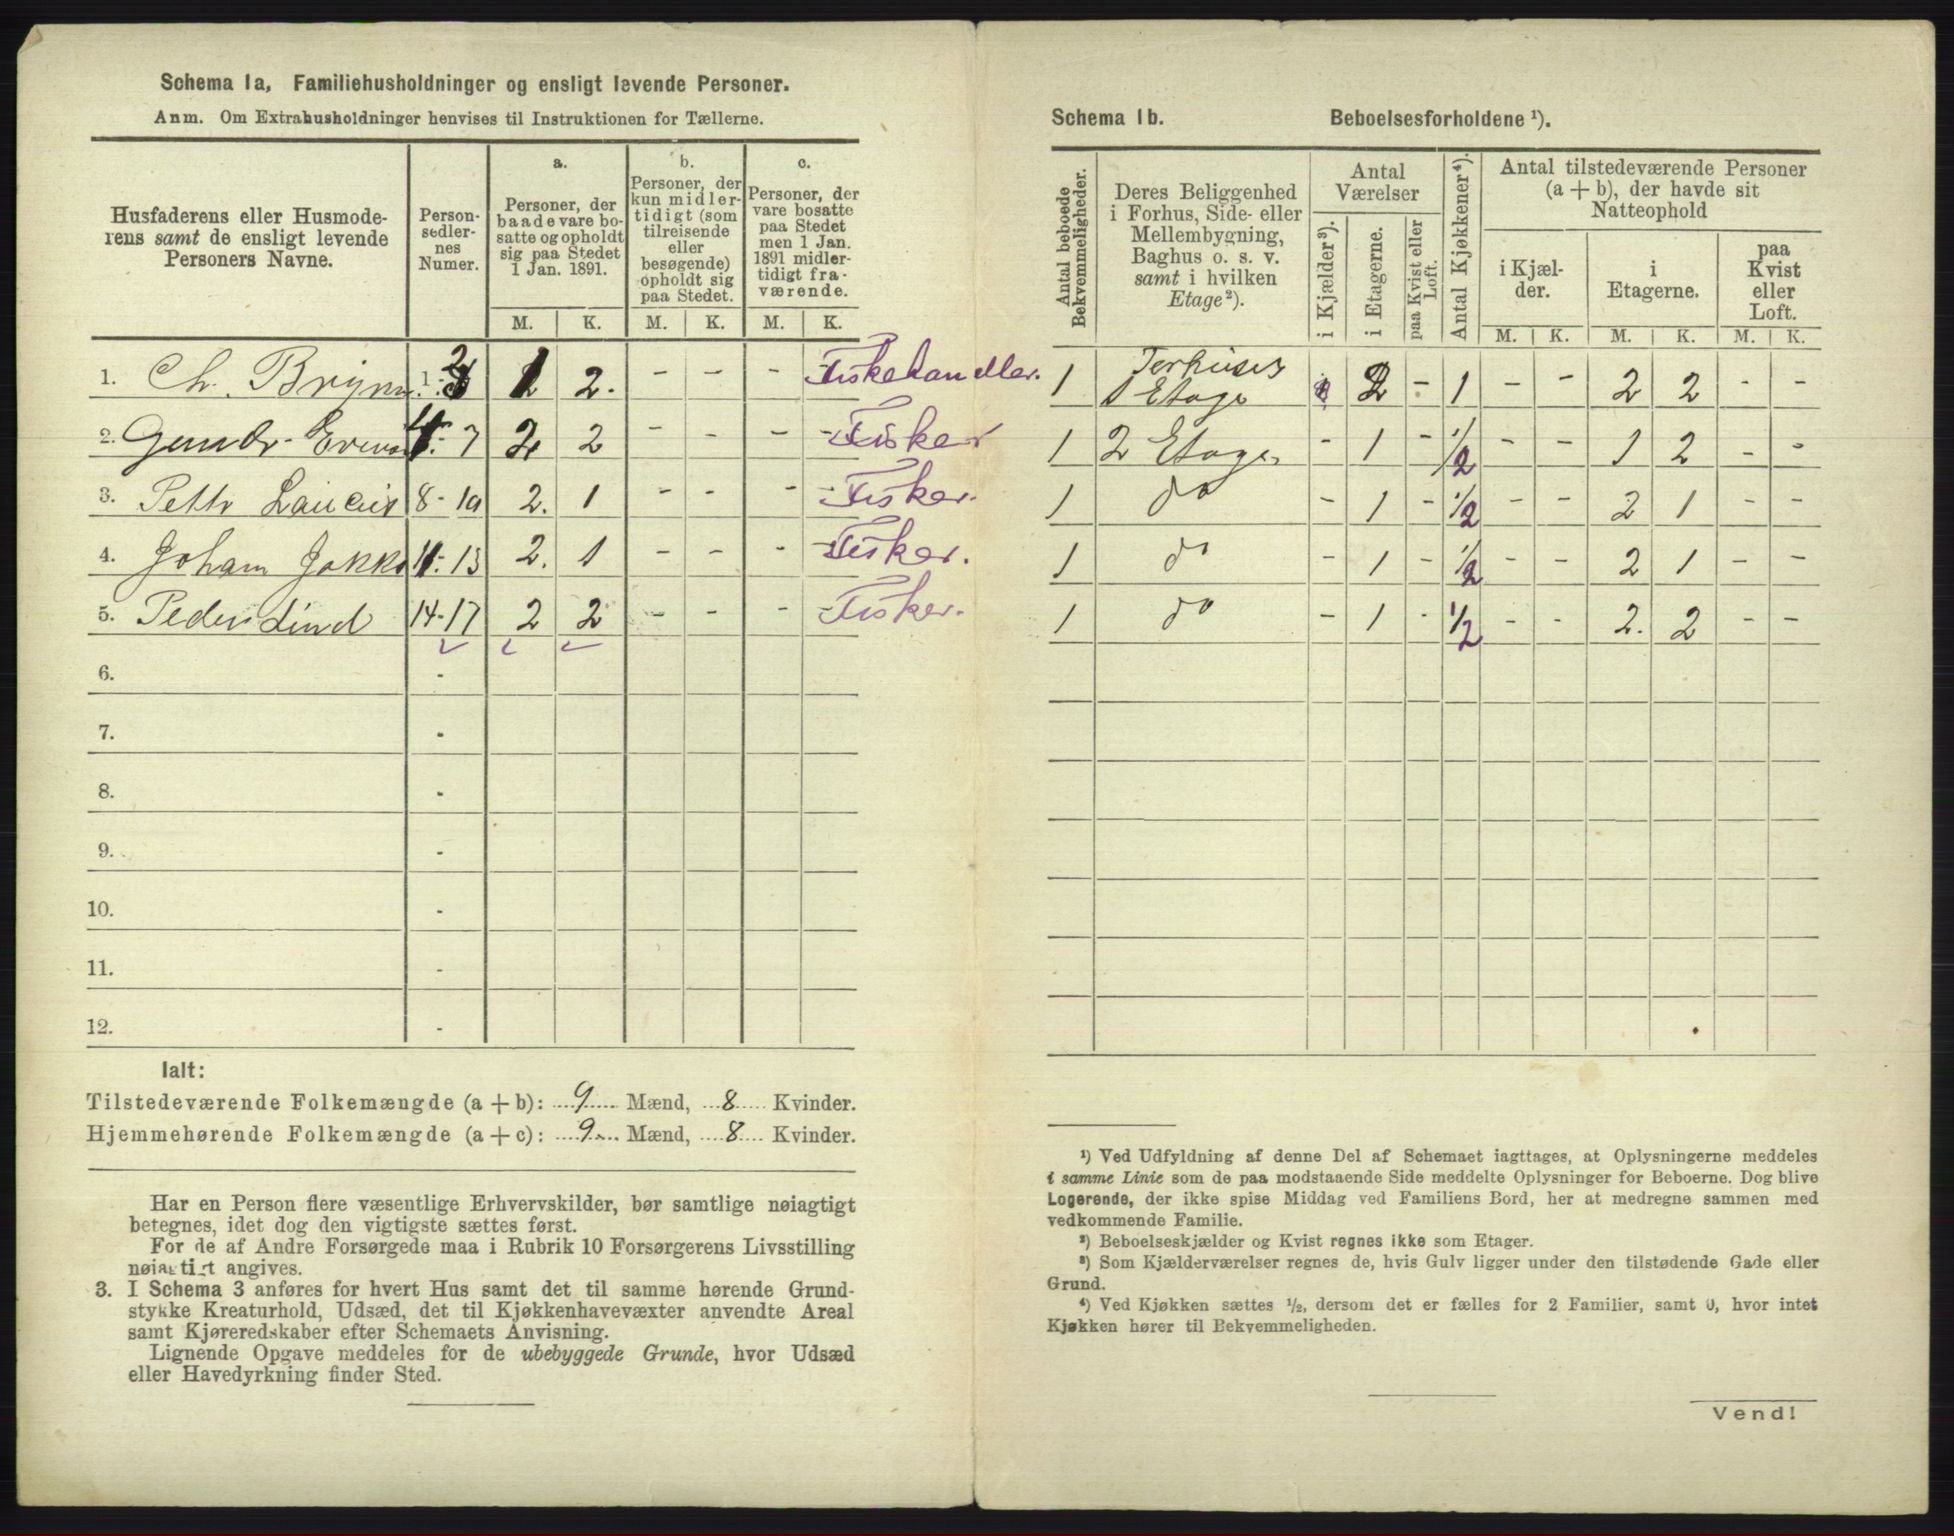 Schema 1a, Familiehusholdninger og ensligt levende Personer.
Anm. Om Extrahusholdninger henvises til Instruktionen for Tællerne.
Husfaderens eller Husmode-
rens samt de ensligt levende
Personers Navne.
Person-
sedler-
nes
Numer.
a.
Personer, der
baade vare bo-
satte og opholdt
sig paa Stedet
1 Jan. 1891.
b.
Personer, der
kun midler-
tidigt (som
tilreisende
eller
besøgende)
opholdt sig
paa Stedet.
c.
Personer, der
vare bosatte
paa Stedet
men 1 Jan.
1891 midler-
tidigt fra-
værende.
M. K. M. K. M. K.
1. Ch. 2 2. - - - Fiskehandler.
2. - 7 2 - - - - Fisker
3. Pettr 8 - 10 2. 1 - - - - Fisker.
4. Joham 11 - 13 2. 1 - - - - Fisker.
5. Peder Lind 14-17 2 2 - - - - Fisker.
6. -
7. -
8. -
9. -
10. -
11. -
12. -
Ialt:
Tilstedeværende Folkemængde (a + b): 9 Mænd, 8 Kvinder.
Hjemmehørende Folkemængde (a + c): 9 Mænd, 8 Kvinder.
Har en Person flere væsentlige Erhvervskilder, bør samtlige nøiagtigt
betegnes, idet dog den vigtigste sættes først.
For de af Andre Forsørgede maa i Rubrik 10 Forsørgerens Livsstilling
nøiagtigt angives.
3. I Schema 3 anføres for hvert Hus samt det til samme hørende Grund-
stykke Kreaturhold, Udsæd, det til Kjøkkenhavevæxter anvendte Areal
samt Kjøreredskaber efter Schemaets Anvisning.
Lignende Opgave meddeles for de ubebyggede Grunde, hvor Udsæd
eller Havedyrkning finder Sted.
Schema 1b. Beboelsesforholdene ¹).
Antal beboede
Bekvemmeligheder.
Deres Beliggenhed
i Forhus, Side- eller
Mellembygning,
Baghus o. s. v.
samt i hvilken
Etage²).
Antal
Værelser
i Kjælder³).
i Etagerne.
paa Kvist eller
Loft.
Antal Kjøkkener⁴).
Antal tilstedeværende Personer
(a + b), der havde sit
Natteophold
i Kjæl-
der.
i
Etagerne.
paa
Kvist
eller
Loft.
M. K. M. K. M. K.
1 1 Etage 2 - 1 - - 2 2 - -
1 2 Etage - 1 - 1/2 - - 1 2 - -
1 do - 1 - 1/2 - - 2 1 - -
1 do - 1 - 1/2 - - 2 1 - -
1 do - 1 - 1/2 - - 2. 2 - -
¹) Ved Udfyldning af denne Del af Schemaet iagttages, at Oplysningerne meddeles
i samme Linie som de paa modstaaende Side meddelte Oplysninger for Beboerne. Dog blive
Logerende, der ikke spise Middag ved Familiens Bord, her at medregne sammen med
vedkommende Familie.
²) Beboelseskjælder og Kvist regnes ikke som Etager.
³) Som Kjælderværelser regnes de, hvis Gulv ligger under den tilstødende Gade eller
Grund.
⁴) Ved Kjøkken sættes ½, dersom det er fælles for 2 Familier, samt 0, hvor intet
Kjøkken hører til Bekvemmeligheden.
Vend!